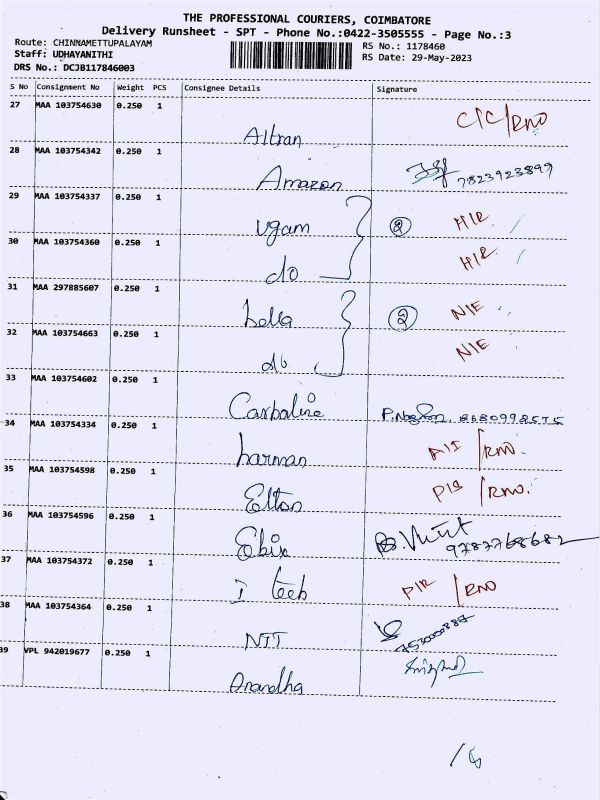 THE PROFESSIONAL COURIERS, COIMBATORE
Delivery Runsheet - SPT - Phone No.:0422-3505555 - Page No.:3
Route: CHINNAMETTUPALAYAM RS No.: 1178460
Staff: UDHAYANITHI RS Date: 29-May-2023
DRS No.: DCJB117846003
S No Consignment No Weight PCS Consignee Details Signature
27 MAA 103754630 0.250 1 Altran C/C/RNO
28 MAA 103754342 0.250 1 Amazon 7823923899
29 MAA 103754337 0.250 1 Ugam 2 H/R
30 MAA 103754360 0.250 1 do H/R
31 MAA 297885607 0.250 1 bella 2 N/E
32 MAA 103754663 0.250 1 do N/E
33 MAA 103754602 0.250 1 Carbaline 8680998575
34 MAA 103754334 0.250 1 harman A/S /RNO.
35 MAA 103754598 0.250 1 Elton P/S /RNO.
36 MAA 103754596 0.250 1 Ebix 9787768682
37 MAA 103754372 0.250 1 i tech P/R /RNO
38 MAA 103754364 0.250 1 NTT
39 VPL 942019677 0.250 1 Anandha